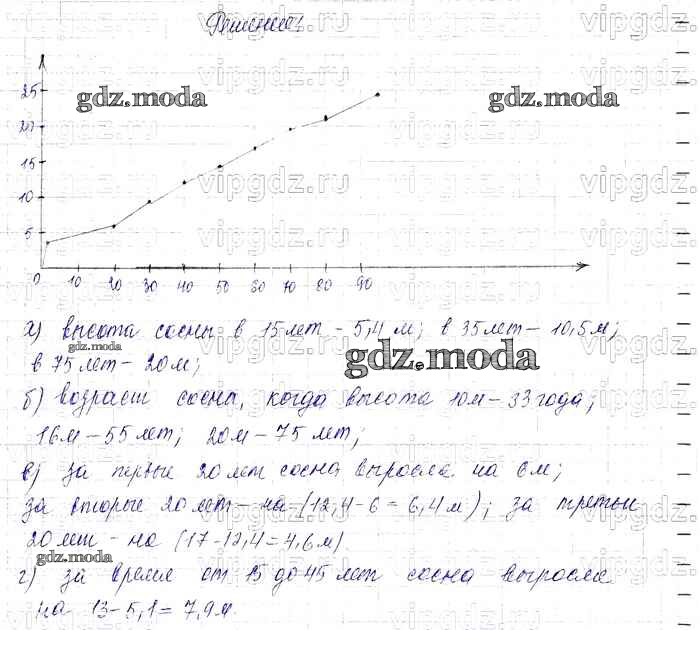 Решение:
25
20
15
10
5
0 10 20 30 40 50 60 70 80 90
а) высота сосны в 15 лет - 5,4 м; в 35 лет - 10,5 м;
в 75 лет - 20 м;
б) возраст сосны, когда высота 10м - 33 года;
16м - 55 лет; 20м - 75 лет;
в) за первые 20 лет сосна выросла на 6м;
за вторые 20 лет - на (12,4-6=6,4м); за третьи
20 лет - на (17-12,4=4,6м)
г) за время от 15 до 45 лет сосна выросла
на 13-5,1=7,9м.
gdz.moda
gdz.moda
gdz.moda
gdz.moda
gdz.moda
vipgdz.ru